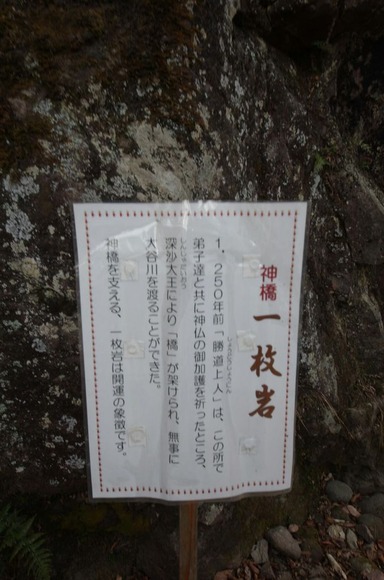 神橋 一枚岩
１，２５０年前「勝道上人」は、この所で
しょうどうしょうにん
弟子達と共に神仏の御加護を祈ったところ、
深沙大王により「橋」が架けられ、無事に
しんじゃだいおう
大谷川を渡ることができた。
神橋を支える、一枚岩は開運の象徴です。